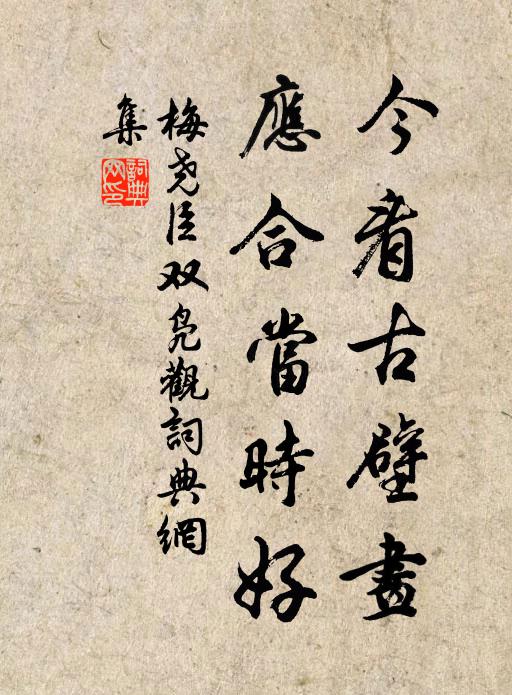 今看古壁畫
應合當時好
梅尧臣双凫觀詞典網
集
詞典
网印